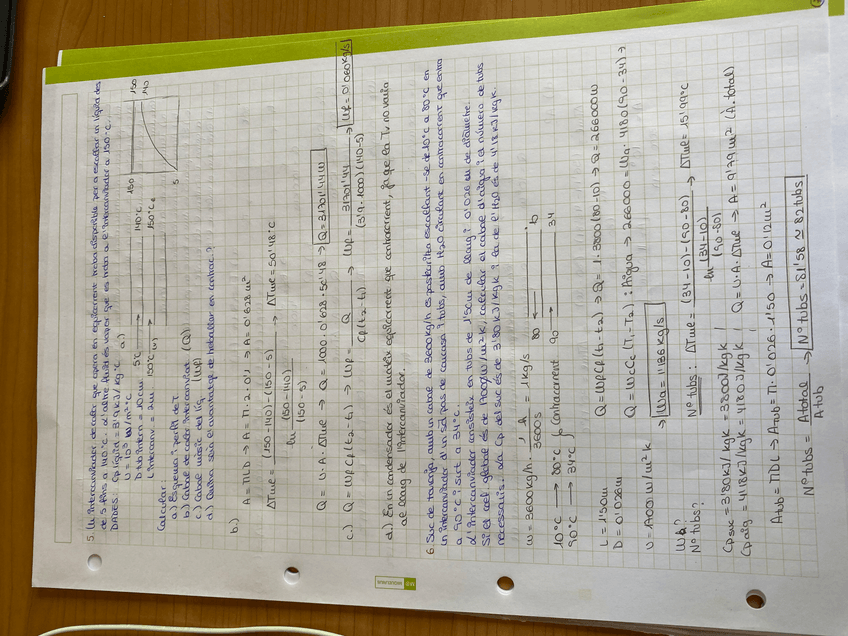 5. Un intercanviador de calor que opera en equicorrent troba disponible per a escalfar un líquid des
de 5 fins a 140°C. L'altre fluid és vapor que es troba a l'intercanviador a 150°C.
DADES: Cp líquid = 3'9 KJ/Kg °C
U = 10³ W/m² °C
D tub intern = 10 cm
L intercanv = 2m
Calcular:
a) Esquema i perfil de T
b) Cabal de calor intercanviat (Q)
c) Cabal màssic del líq. (Wf)
d) Quina seria l'avantatge de treballar en contrac.?
a)
5°C
140°C
150°C
150°C
150
150
140
5
b.)
A = ΠLD → A = Π · 2 · 0'1 → A = 0'628 m²
ΔTml = (150-140)-(150-5) / ln (150-140)/(150-5) → ΔTml = 50'48°C
Q = U · A · ΔTml → Q = 1000 · 0'628 · 50'48 → Q = 31701'44 W
c.) Q = Wf Cp (t2 - t1) → Wf = Q / Cp (t2-t1) → Wf = 31701'44 / (3'9 · 1000) (140-5) → Wf = 0'060 Kg/s
d.) En un condensador és el mateix equicorrent que contracorrent, ja que la Tv no varia
al llarg de l'intercanviador.
6. Suc de taronja amb un cabal de 3600 kg/h es pasteuritza escalfant-se de 10°C a 80°C en
un intercanviador d'un sol pas de carcasa i tubs, amb H2O circulant en contracorrent que entra
a 90°C i surt a 34°C.
L'intercanviador consisteix en tubs de 1'50m de llarg i 0'026 m de diàmetre.
Si el coef. global és de 1700 W/m² K, calcular el cabal d'aigua i el número de tubs
necessaris. La Cp del suc és de 3'80 KJ/kg K i la de l'H2O és de 4'18 KJ/kg K.
W = 3600 kg/h · 1 h / 3600 s = 1 kg/s
10°C → 80°C
90°C → 34°C
contracorrent
80
10
90
34
L = 1'50m
D = 0'026m
U = 1700 W/m² K
Q = Wf Cf (t1 - t2) → Q = 1 · 3800 (80-10) → Q = 266000 W
Q = Wc Cc (T1 - T2) : Aigua → 266000 = Wa · 4180 (90-34) →
→ Wa = 1'136 kg/s
Wa?
Nº tubs?
Nº tubs : ΔTml = (34-10)-(90-80) / ln (34-10)/(90-80) → ΔTml = 15'99°C
Cp suc = 3'80 KJ/kg K = 3800 J/kg K
Cp aig = 4'18 KJ/kg K = 4180 J/kg K
Q = U · A · ΔTml → A = 9'79 m² (A. total)
Atub = ΠDL → Atub = Π · 0'026 · 1'50 → A = 0'12 m²
Nº tubs = A total / A tub → Nº tubs = 81'58 ≃ 82 tubs